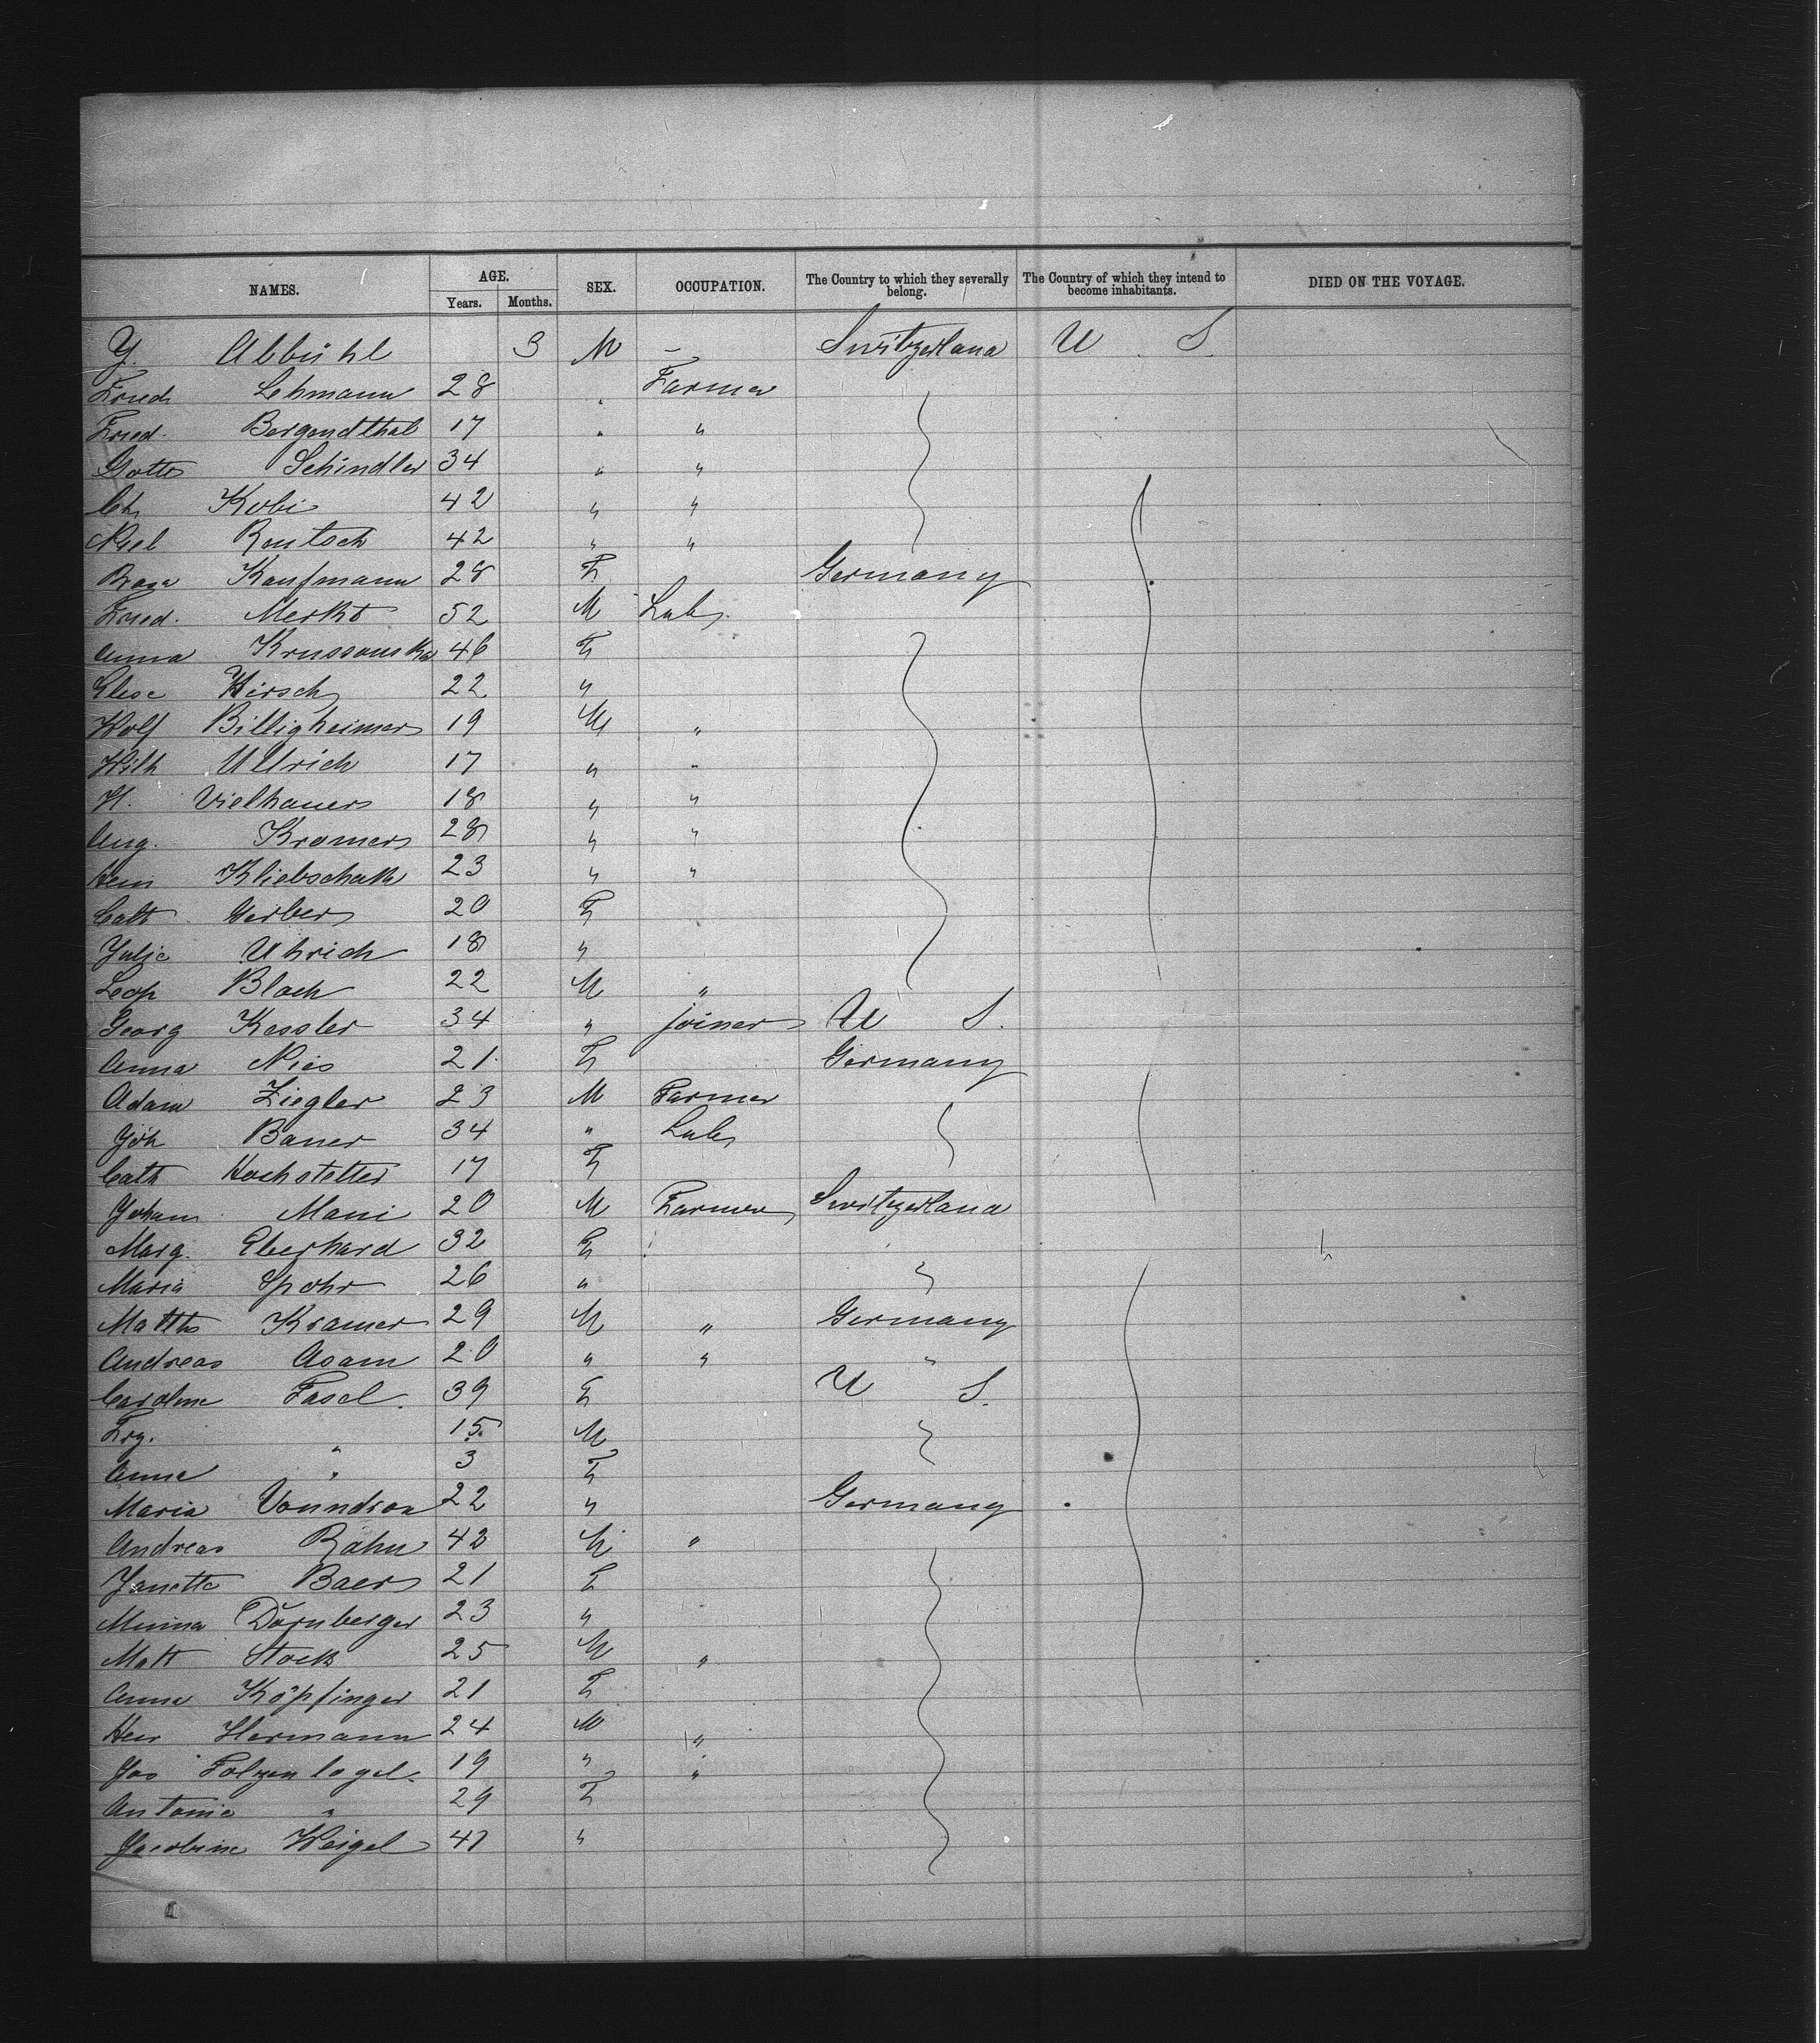 NAMES. AGE. SEX. OCCUPATION. The Country to which they severally belong. The Country of which they intend to become inhabitants. DIED ON THE VOYAGE.
Years. Months.
Y. Abbühl 3 M – Switzerland U. S.
Fried Lehmann 28 " Farmer
Fried. Bergendthal 17 " "
Gottb Schindler 34 " "
Ch Kobi 42 " "
Niel Rentsch 42 " "
Rosa Kaufmann 28 F Germany
Fried. Merkt 52 M Lab
Anna 46 F
Elise Hirsch 22 "
Wolf Billigheimer 19 M "
Wilh Ullrich 17 " "
H. Vielhauer 18 " "
Aug. Kramer 28 " "
Hein 23 " "
Cath Gerber 20 F
Julie Uhrich 18 "
Leop Bloch 22 M "
Georg Kessler 34 " joiner U S.
Anna Nies 21 F Germany
Adam Ziegler 23 M Farmer
Joh Bauer 34 " Lab
Cath Hochstetter 17 F
Johann Mani 20 M Farmer Switzerland
Marg. Eberhard 32 F
Maria Spohr 26 "
Matths Kramer 29 M " Germany
Andreas Asam 20 " " "
Caroline Fasel. 39 F U S.
Frz. " 15 M
Anna " 3 F
Maria 22 " Germany
Andreas Rähn 42 M "
Janette Baer 21 F
Minna Dörnberger 23 "
Matt Stock 25 M "
Anna Köpfinger 21 F
Hein Hermann 24 M "
Jos Folzenlogel. 19 " "
Antonie " 29 F
Jacobine Weigel 47 "